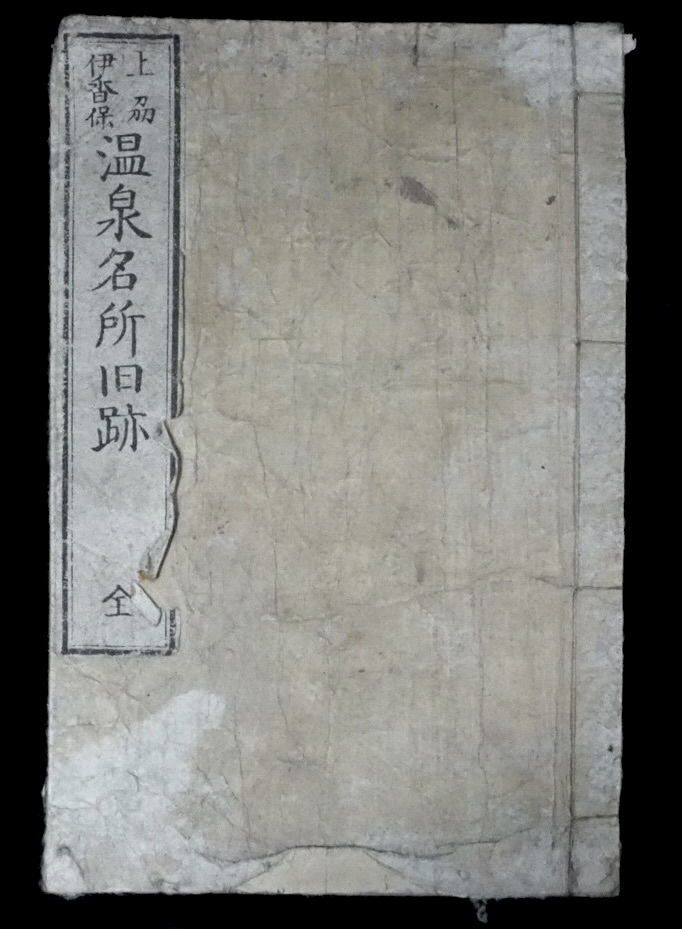 上刕
伊香保
温泉名所旧跡
全